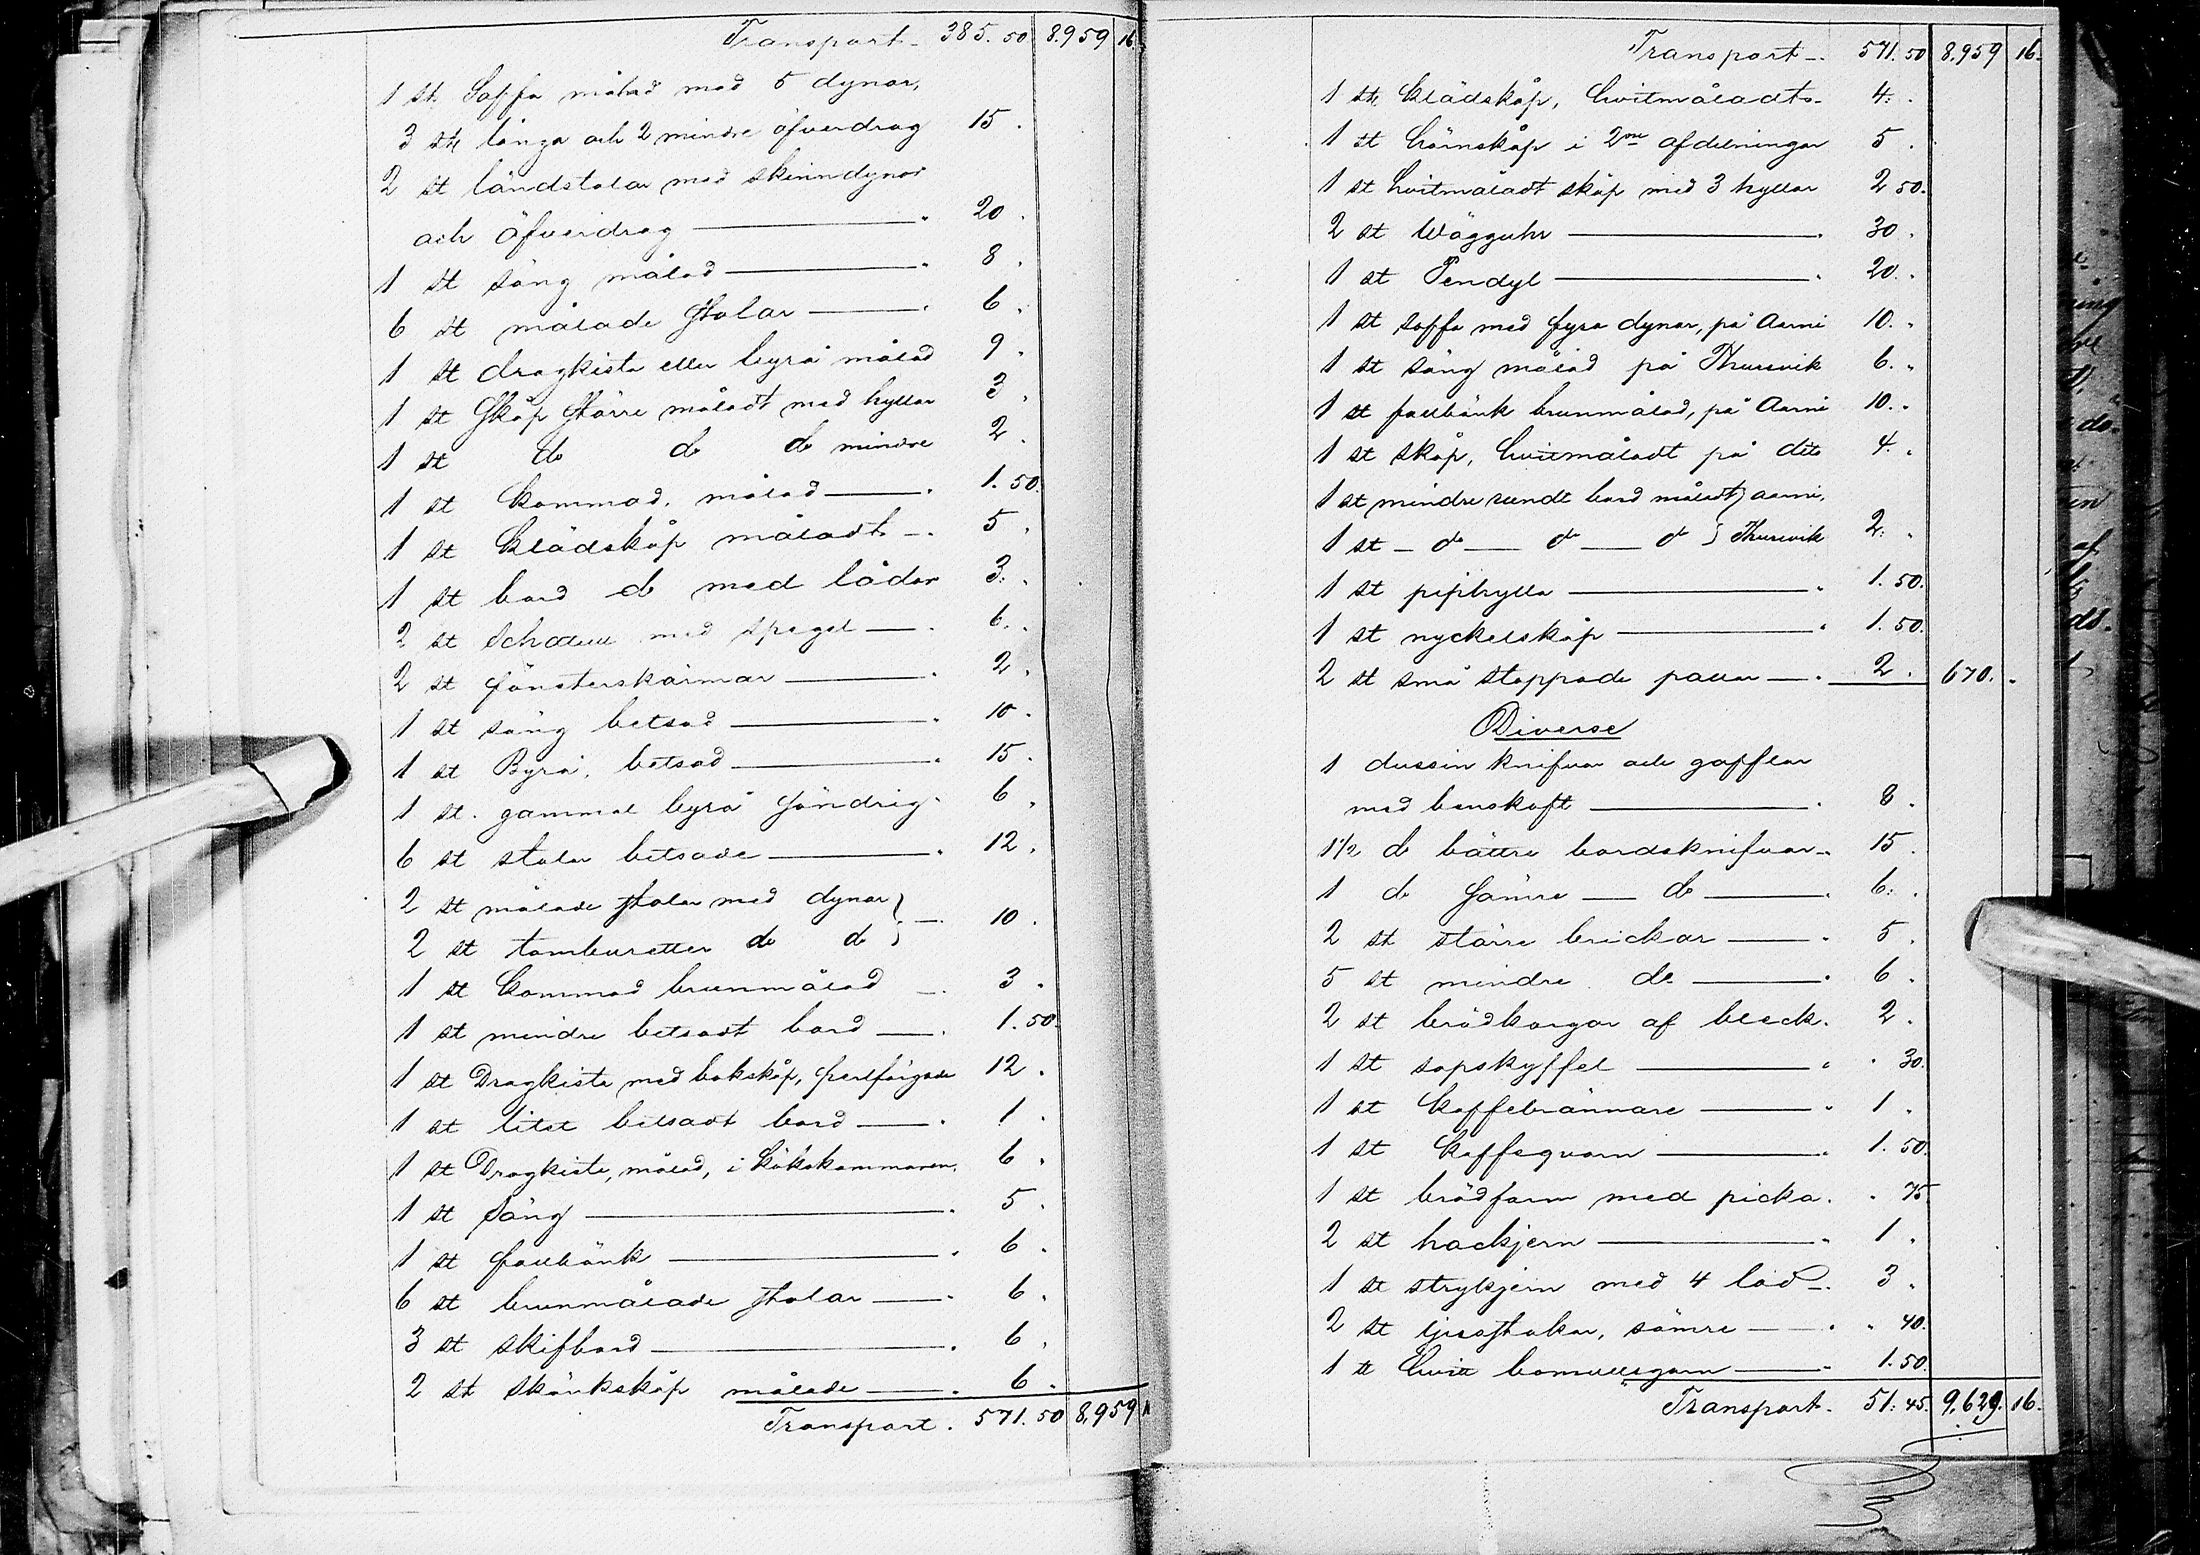 Transport 385. 50 8.959 16
1 st. Soffa målad med 5 dynor,
3 st långa och 2 mindre öfverdrag 15.
2 st ländstolar med skinndynor
och öfverdrag 20.
1 st säng målad 8.
6 st målade stolar 6.
1 st dragkista eller byrå målad 9.
1 st skåp större måladt med hyllor 3.
1 st do do do mindre 2.
1 st kommod, målad 1.50.
1 st klädskåp måladt 5.
1 st bord do med lådor 3.
2 st Schatull med spegel 6.
2 st fönsterskärmar 2.
1 st säng betsad 10.
1 st Byrå, betsad 15.
1 st. gammal byrå söndrig 6.
6 st stolar betsade 12.
2 st målade stolar med dynor
2 st tamburetter do do 10.
1 st kommod brunmålad 3.
1 st mindre betsadt bord 1.50.
1 st Dragkista med bokskåp, perlfärgade 12.
1 st litet betsadt bord 1.
1 st Dragkista, målad, i kökskammaren 6.
1 st säng 5.
1 st fallbänk 6.
6 st brunmålade stolar 6.
3 st skifbord 6.
2 st skänkskåp målade 6.
Transport. 571.50 8,959
Transport 571.50 8,959 16.
1 st klädskåp, hvitmåladt 4.
1 st hörnskåp i 2ne afdelningar 5.
1 st hvitmåladt skåp med 3 hyllor 2 50.
2 st Wägguhr 30.
1 st Pendyl 20.
1 st soffa med fyra dynor, på Aarni 10.
1 st säng målad på Thursvik 6.
1 st fallbänk brunmålad, på Aarni 10.
1 st skåp, hvitmåladt på dito 4.
1 st mindre rundt bord måladt aarni,
1 st do do do Thursvik 2.
1 st piphylla 1.50.
1 st nyckelskåp 1.50.
2 st små stoppade pallar 2. 670.
Diverse
1 dussin knifvar och gafflar
med benskaft 8.
1 1/2 do bättre bordsknifvar 15.
1 do sämre do 6.
2 st större brickor 5.
5 st mindre do 6.
2 st brödkorgar af bleck. 2.
1 st sopskyffel 30.
1 st kaffebrännare 1.
1 st kaffeqvarn 1.50.
1 st brödform med picka. 75
2 st hackjern 1.
1 st strykjern med 4 lod 3.
2 st ljusstakar, sämre 40.
1 ℔ hvitt bomullsgarn 1.50.
Transport. 51.45. 9,629. 16.